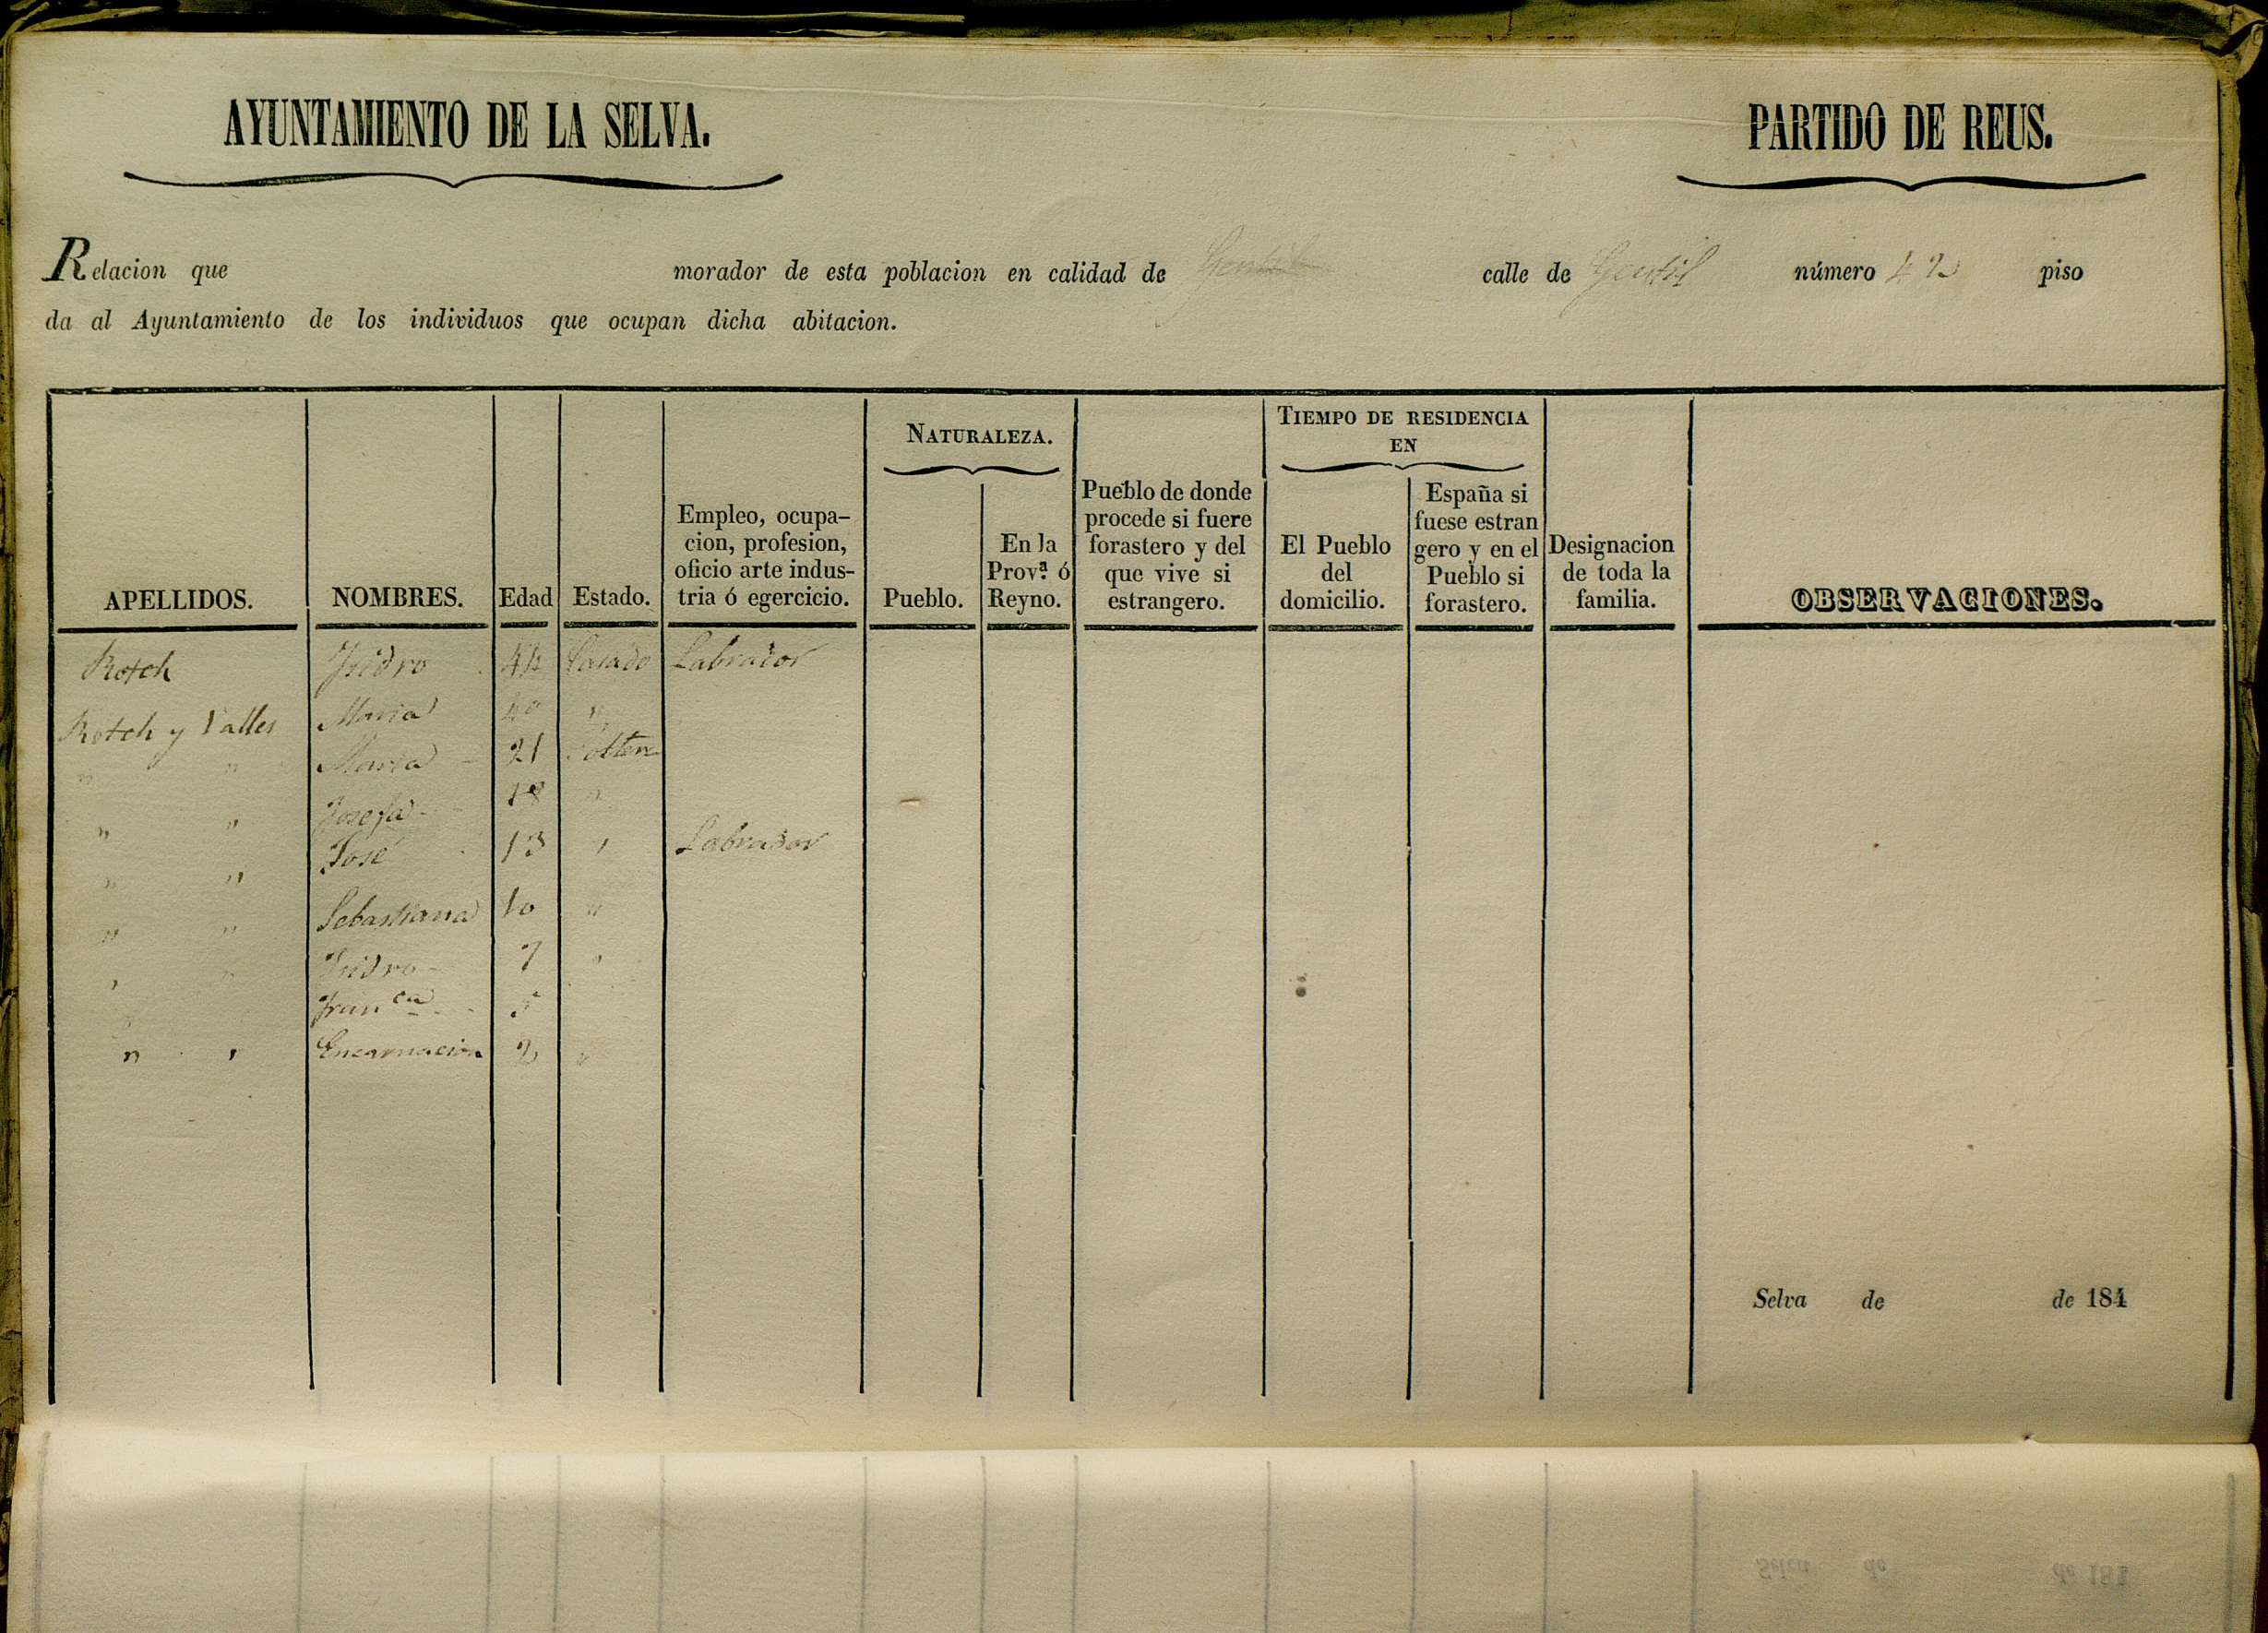 AYUNTAMIENTO DE LA SELVA. PARTIDO DE REUS.
Relacion que morador de esta poblacion en calidad de Gentil calle de Gentil número 42 piso
da al Ayuntamiento de los individuos que ocupan dicha abitacion.
APELLIDOS. NOMBRES. Edad Estado. Empleo, ocupa-cion, profesion, oficio arte indus-tria ó egercicio. NATURALEZA. Pueblo. En la Prov.ª ó Reyno. Pueblo de donde procede si fuere forastero y del que vive si estrangero. TIEMPO DE RESIDENCIA EN El Pueblo del domicilio. España si fuese estran gero y en el Pueblo si forastero. Designacion de toda la familia. OBSERVACIONES.
Rotch Isidro 44 Casado Labrador
Rotch y Valles Maria 40 "
" " Maria 21 Soltera
" " Josefa 18 "
" " José 13 " Labrador
" " Sebastiana 10 "
" " Isidro 7 "
" Fran.ca 5
" " Encarnacion 2 "
Selva de de 184